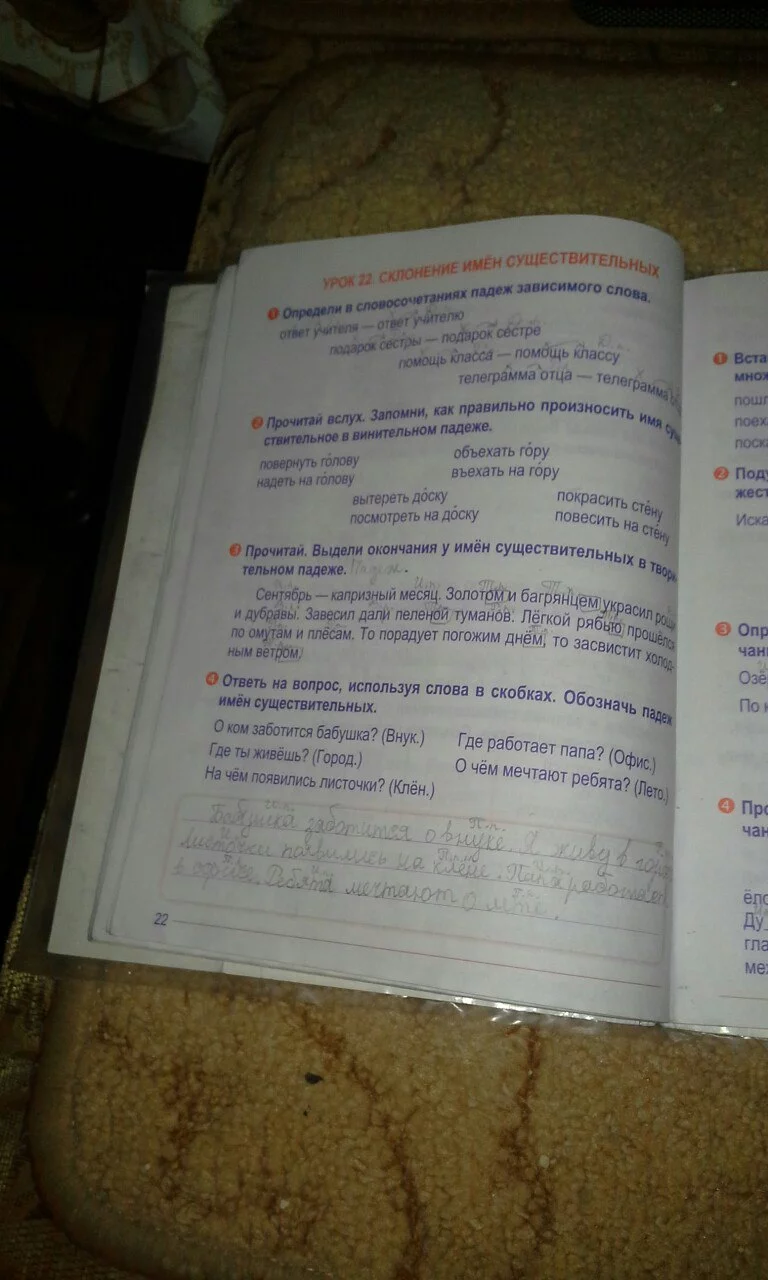 УРОК 22. СКЛОНЕНИЕ ИМЁН СУЩЕСТВИТЕЛЬНЫХ
1 Определи в словосочетаниях падеж зависимого слова.
ответ учителя — ответ учителю
подарок сестры — подарок сестре
помощь класса — помощь классу
телеграмма отца — телеграмма
2 Прочитай вслух. Запомни, как правильно произносить имя сущ
ствительное в винительном падеже.
повернуть го́лову объехать го́ру
надеть на го́лову въехать на го́ру
вытереть до́ску покрасить сте́ну
посмотреть на до́ску повесить на сте́ну
3 Прочитай. Выдели окончания у имён существительных в твори
тельном падеже. Падеж.
Сентябрь — капризный месяц. Золотом и багрянцем украсил рощи
и дубравы. Завесил дали пеленой туманов. Лёгкой рябью прошёлся
по омутам и плёсам. То порадует погожим днём, то засвистит холод-
ным ветром.
4 Ответь на вопрос, используя слова в скобках. Обозначь падеж
имён существительных.
О ком заботится бабушка? (Внук.) Где работает папа? (Офис.)
Где ты живёшь? (Город.) О чём мечтают ребята? (Лето.)
На чём появились листочки? (Клён.)
Бабушка заботится о внуке. Я живу в горо
листочки появились на клёне. Папа работает
в офисе. Ребята мечтают о лете.
22
1 Вста
множ
пошл
поеха
поска
2 Поду
жест
Иска
3 Опр
чани
Озёр
По к
4 Про
чан
ёло
Ду
гла
меж